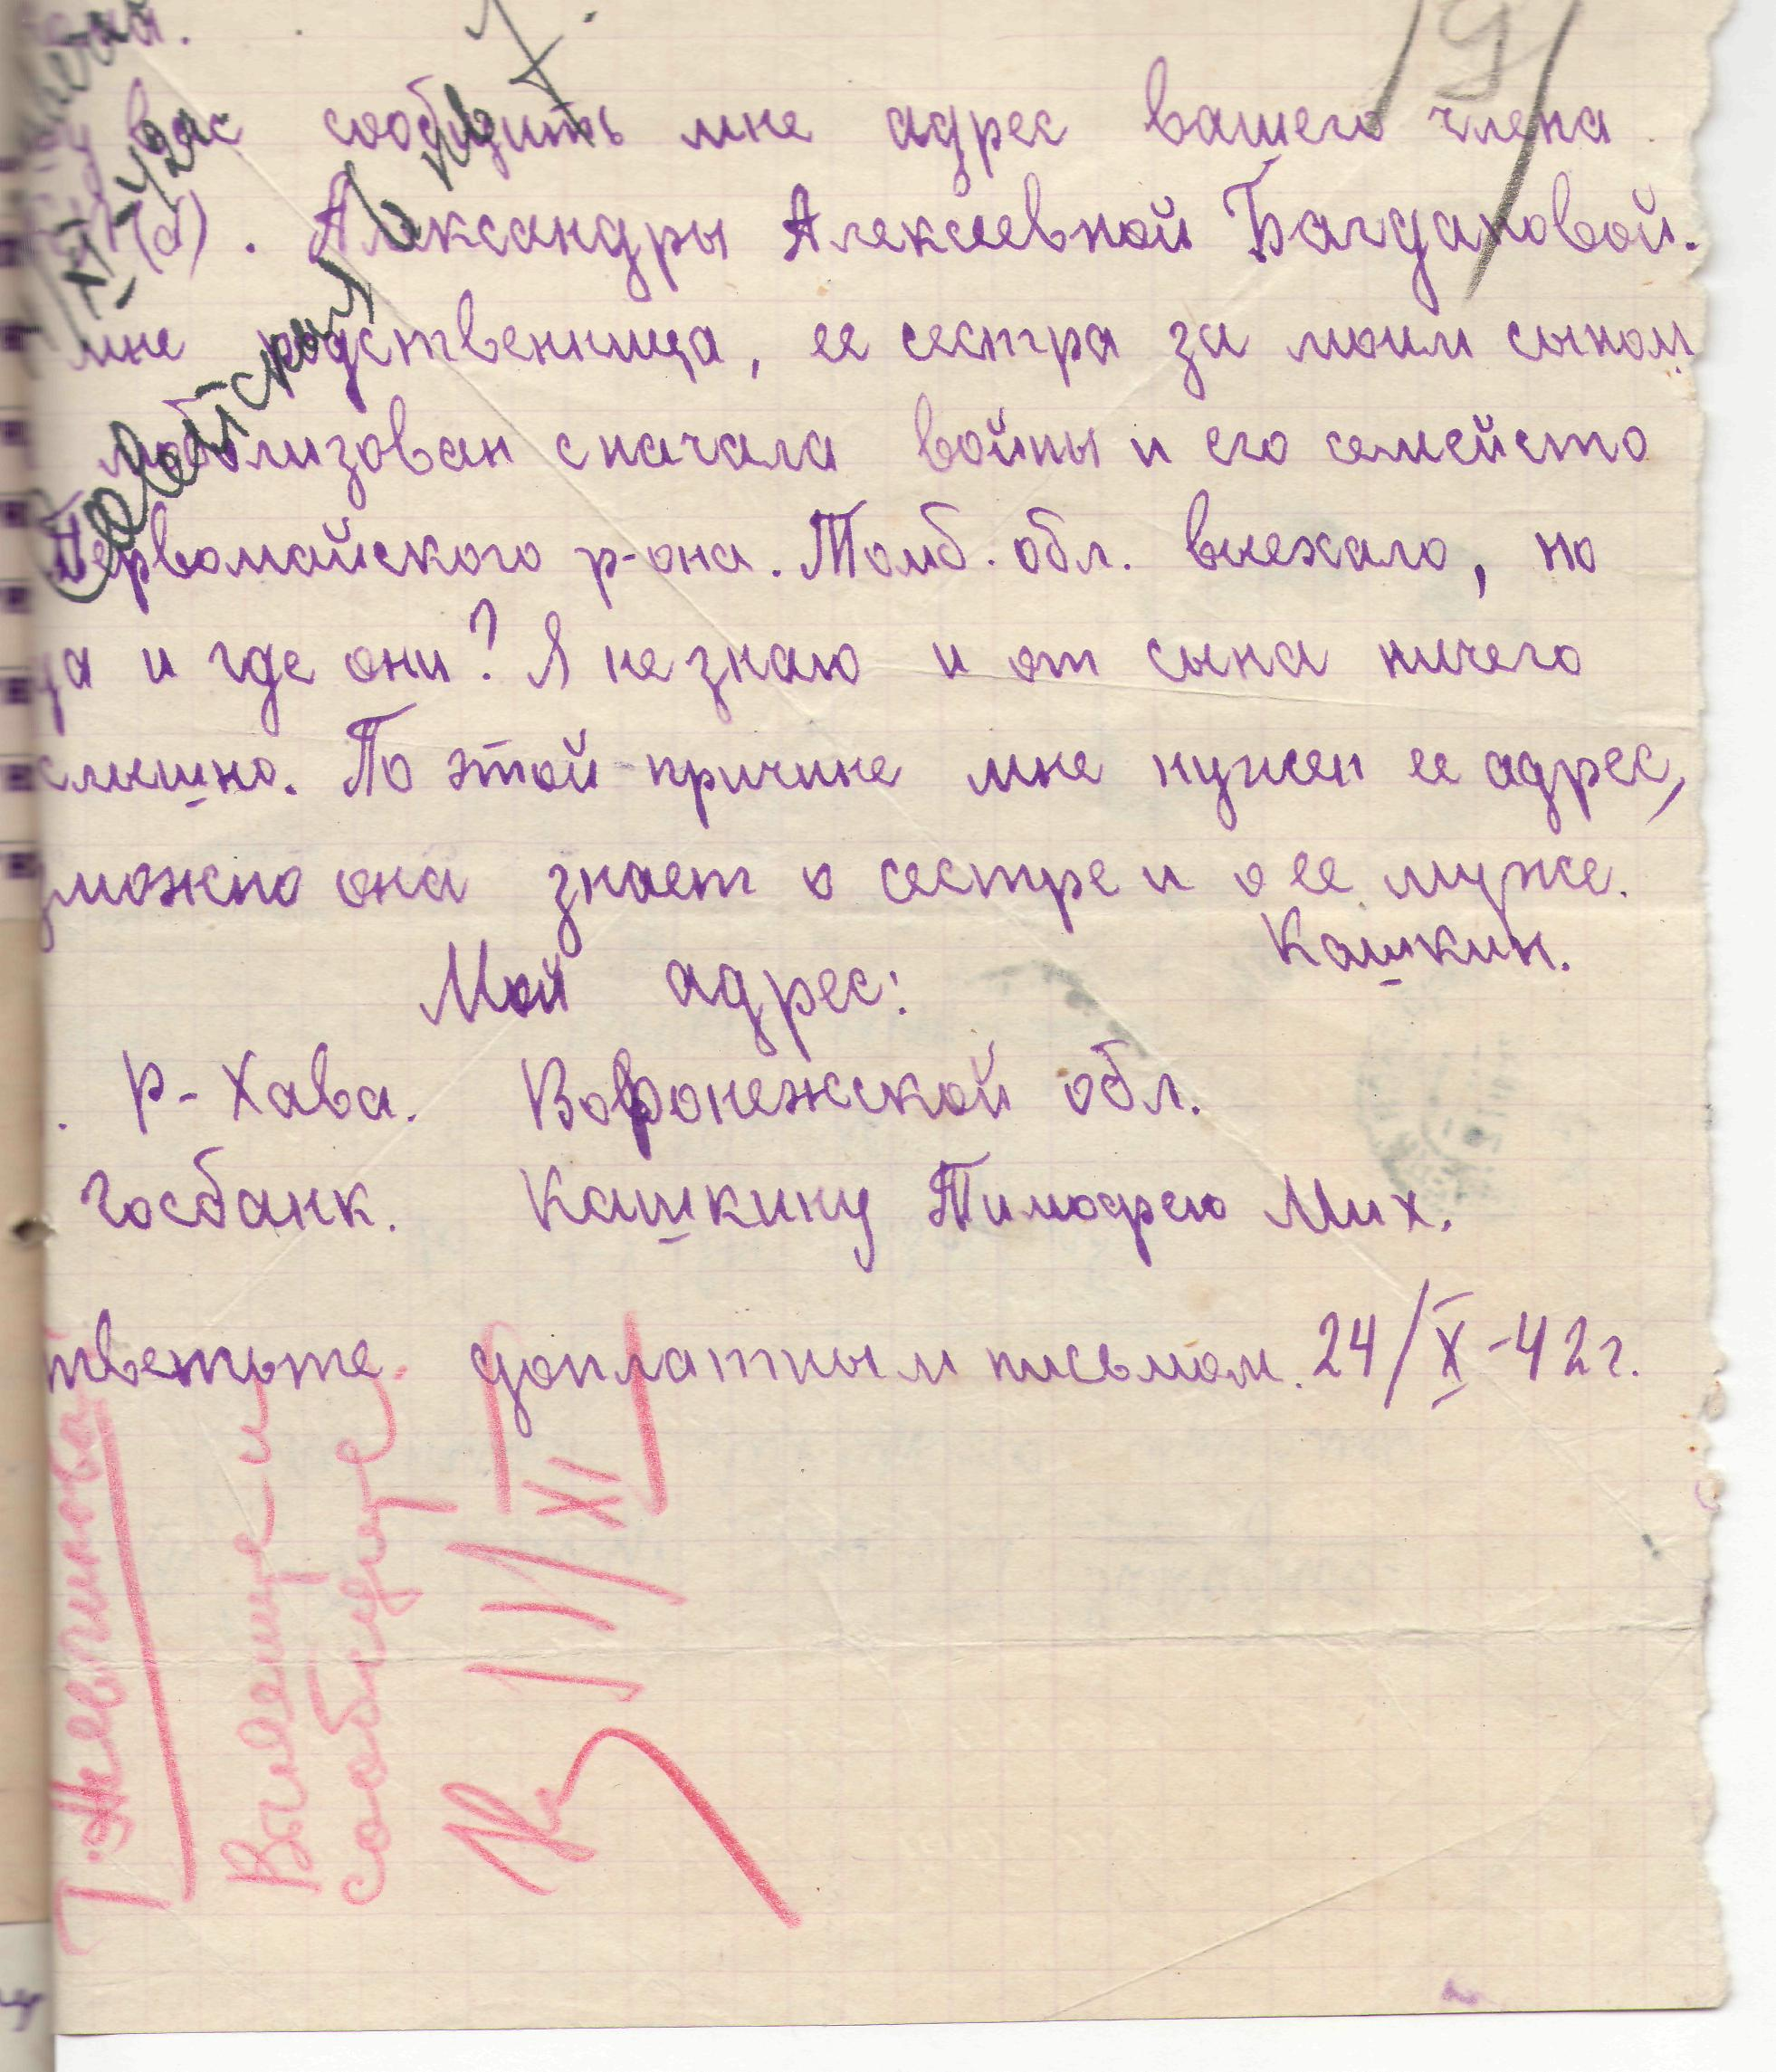 9
вас сообщить мне адрес вашего члена
(б). Александры Алексеевной Багдановой.
мне родственница, ее сестра за моим сыном
мобилизован сначала войны и его семейсто
Первомайского р-она. Томб. обл. выехало, но
да и где они? Я не знаю и от сына ничего
слышно. По этой причине мне нужен ее адрес,
зможно она знает о сестре и о ее муже.
Кашкин.
Мой адрес:
Р-Хава. Воронежской обл.
Госбанк. Кашкину Тимофею Мих.
тветьте доплатным письмом. 24/X-42 г.
Вышлите и
сообщите
XI